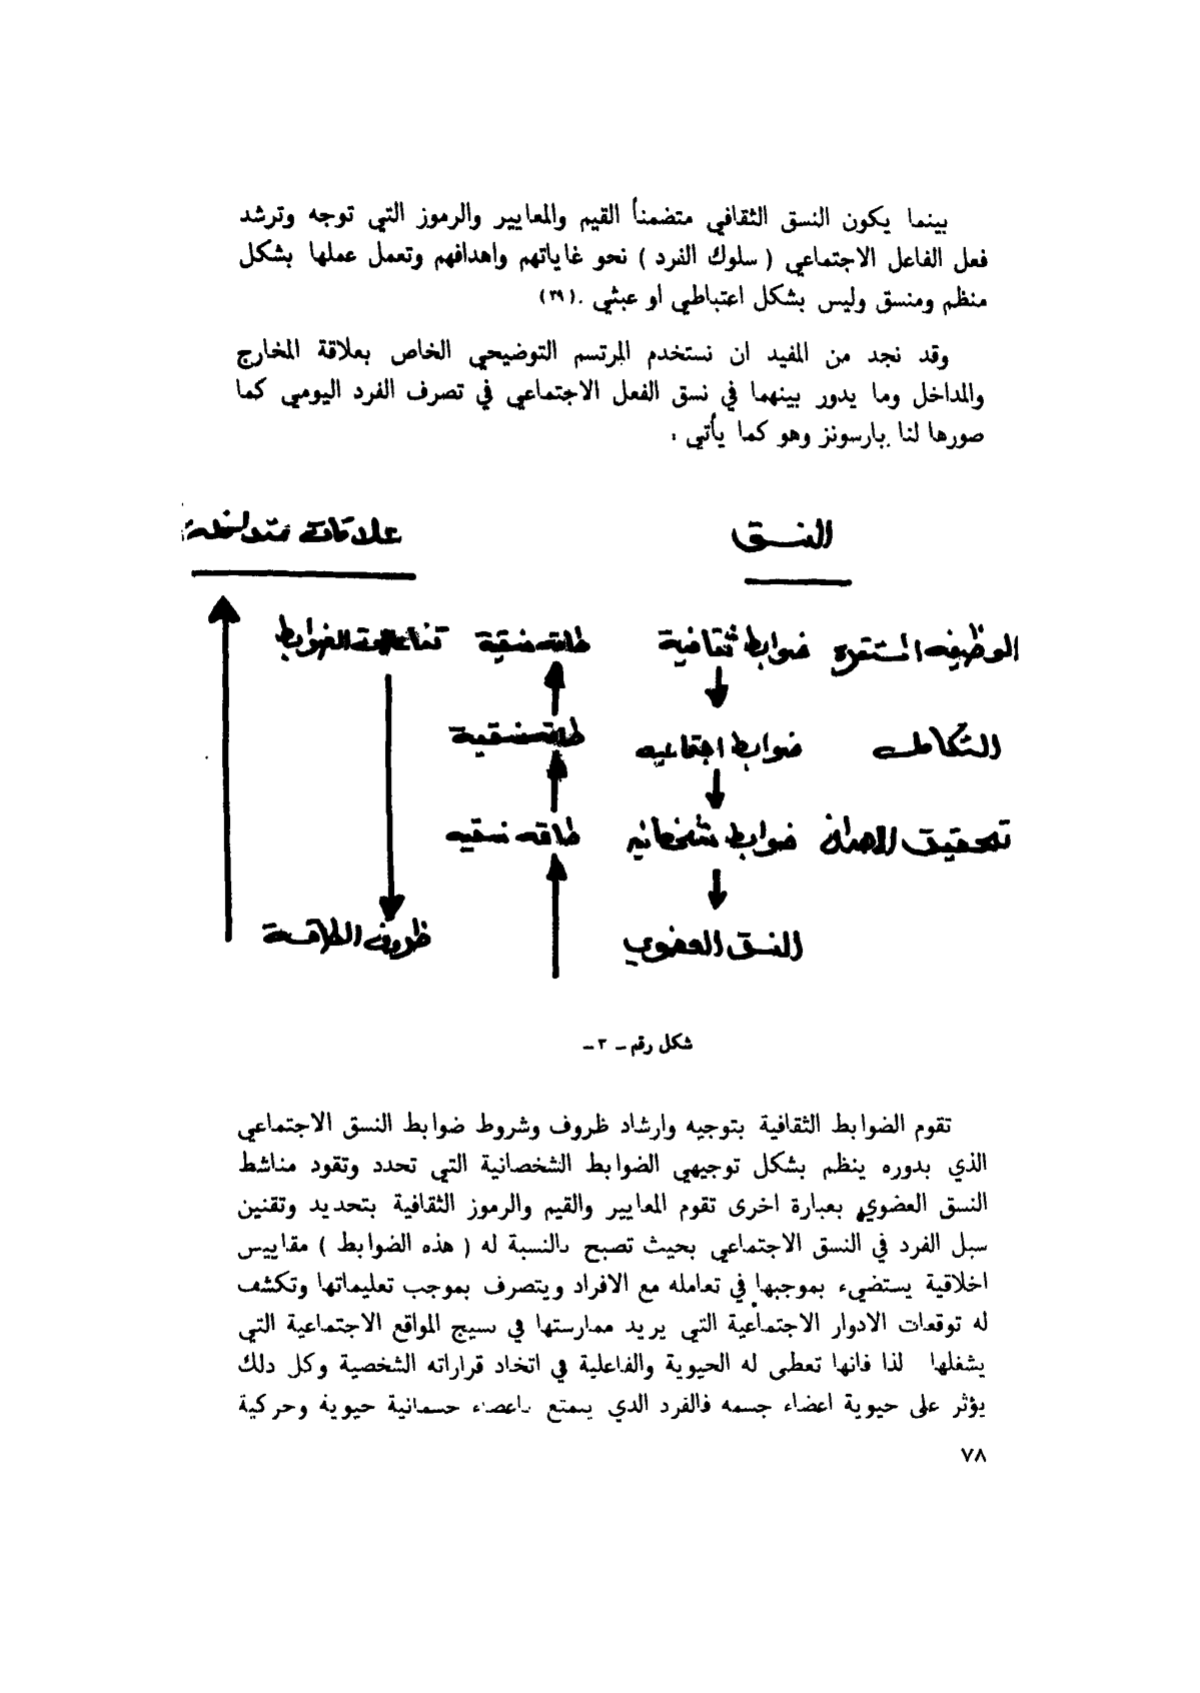 بينما يكون النسق الثقافي متضمنأ القيم والمعايير والرموز التي توجه وترشد
فعل الفاعل الاجتماعي ( سلوك الفرد ) نحو غاياتهم واهدافهم وتعمل عملها بشكل
منظم ومنسق وليس بشكل اعتباطي او عبثي .(٣٩)
وقد نجد من المفيد ان نستخدم المرتسم التوضيحي الخاص بعلاقة المخارج
والمداخل وما يدور بينهما في نسق الفعل الاجتماعي في تصرف الفرد اليومي كما
صورها لنا بارسونز وهو كما يأتي :
النسق علاقات متداخلة
الوظيفه المستقرة ضوابط ثقافية طاقه نسقية تفاعلات الضوابط
التكامل ضوابط اجتماعيه طاقه نسقية
تحقيق الاهداف ضوابط شخصانيه طاقه نسقيه
النسق العضوي ظروف الطاقة
شكل رقم ـ ٣ ـ
تقوم الضوابط الثقافية بتوجيه وارشاد ظروف وشروط ضوابط النسق الاجتماعي
الذي بدوره ينظم بشكل توجيهي الضوابط الشخصانية التي تحدد وتقود مناشط
النسق العضوي بعبارة اخرى تقوم المعايير والقيم والرموز الثقافية بتحديد وتقنين
سبل الفرد في النسق الاجتماعي بحيث تصبح بالنسبة له ( هذه الضوابط ) مقاييس
اخلاقية يستضيء بموجبها في تعامله مع الافراد ويتصرف بموجب تعليماتها وتكشف
له توقعات الادوار الاجتماعية التي يريد ممارستها في نسيج المواقع الاجتماعية التي
يشغلها لذا فانها تعطي له الحيوية والفاعلية في اتخاد قراراته الشخصية وكل دلك
يؤثر على حيوية اعضاء جسمه فالفرد الدي يتمتع باعضاء جسمانية حيوية وحركية
٧٨